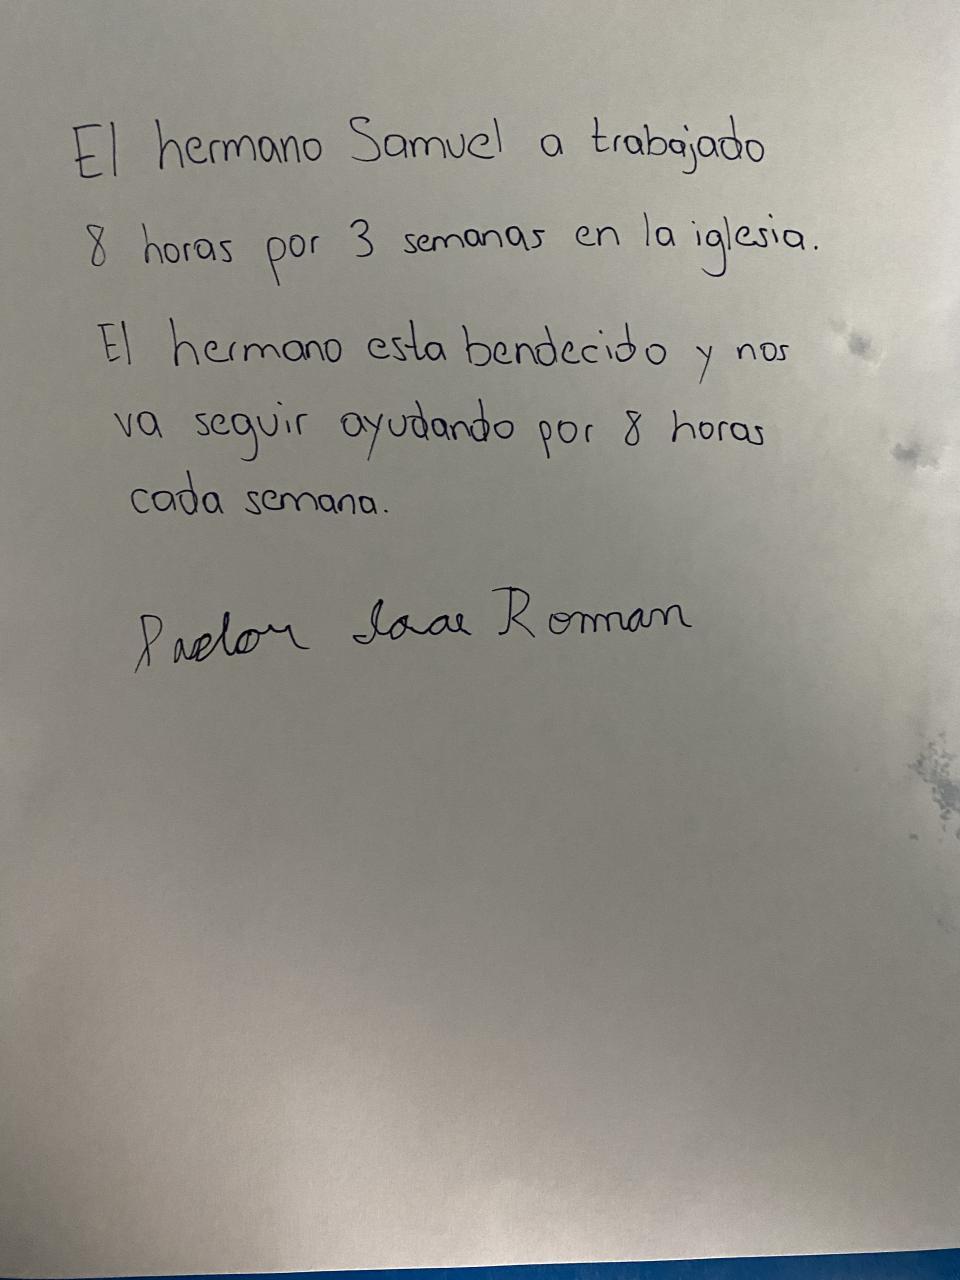 El hermano Samuel a trabajado
8 horas por 3 semanas en la iglesia.
El hermano esta bendecido y nos
va seguir ayudando por 8 horas
cada semana.
Pastor Isaac Roman